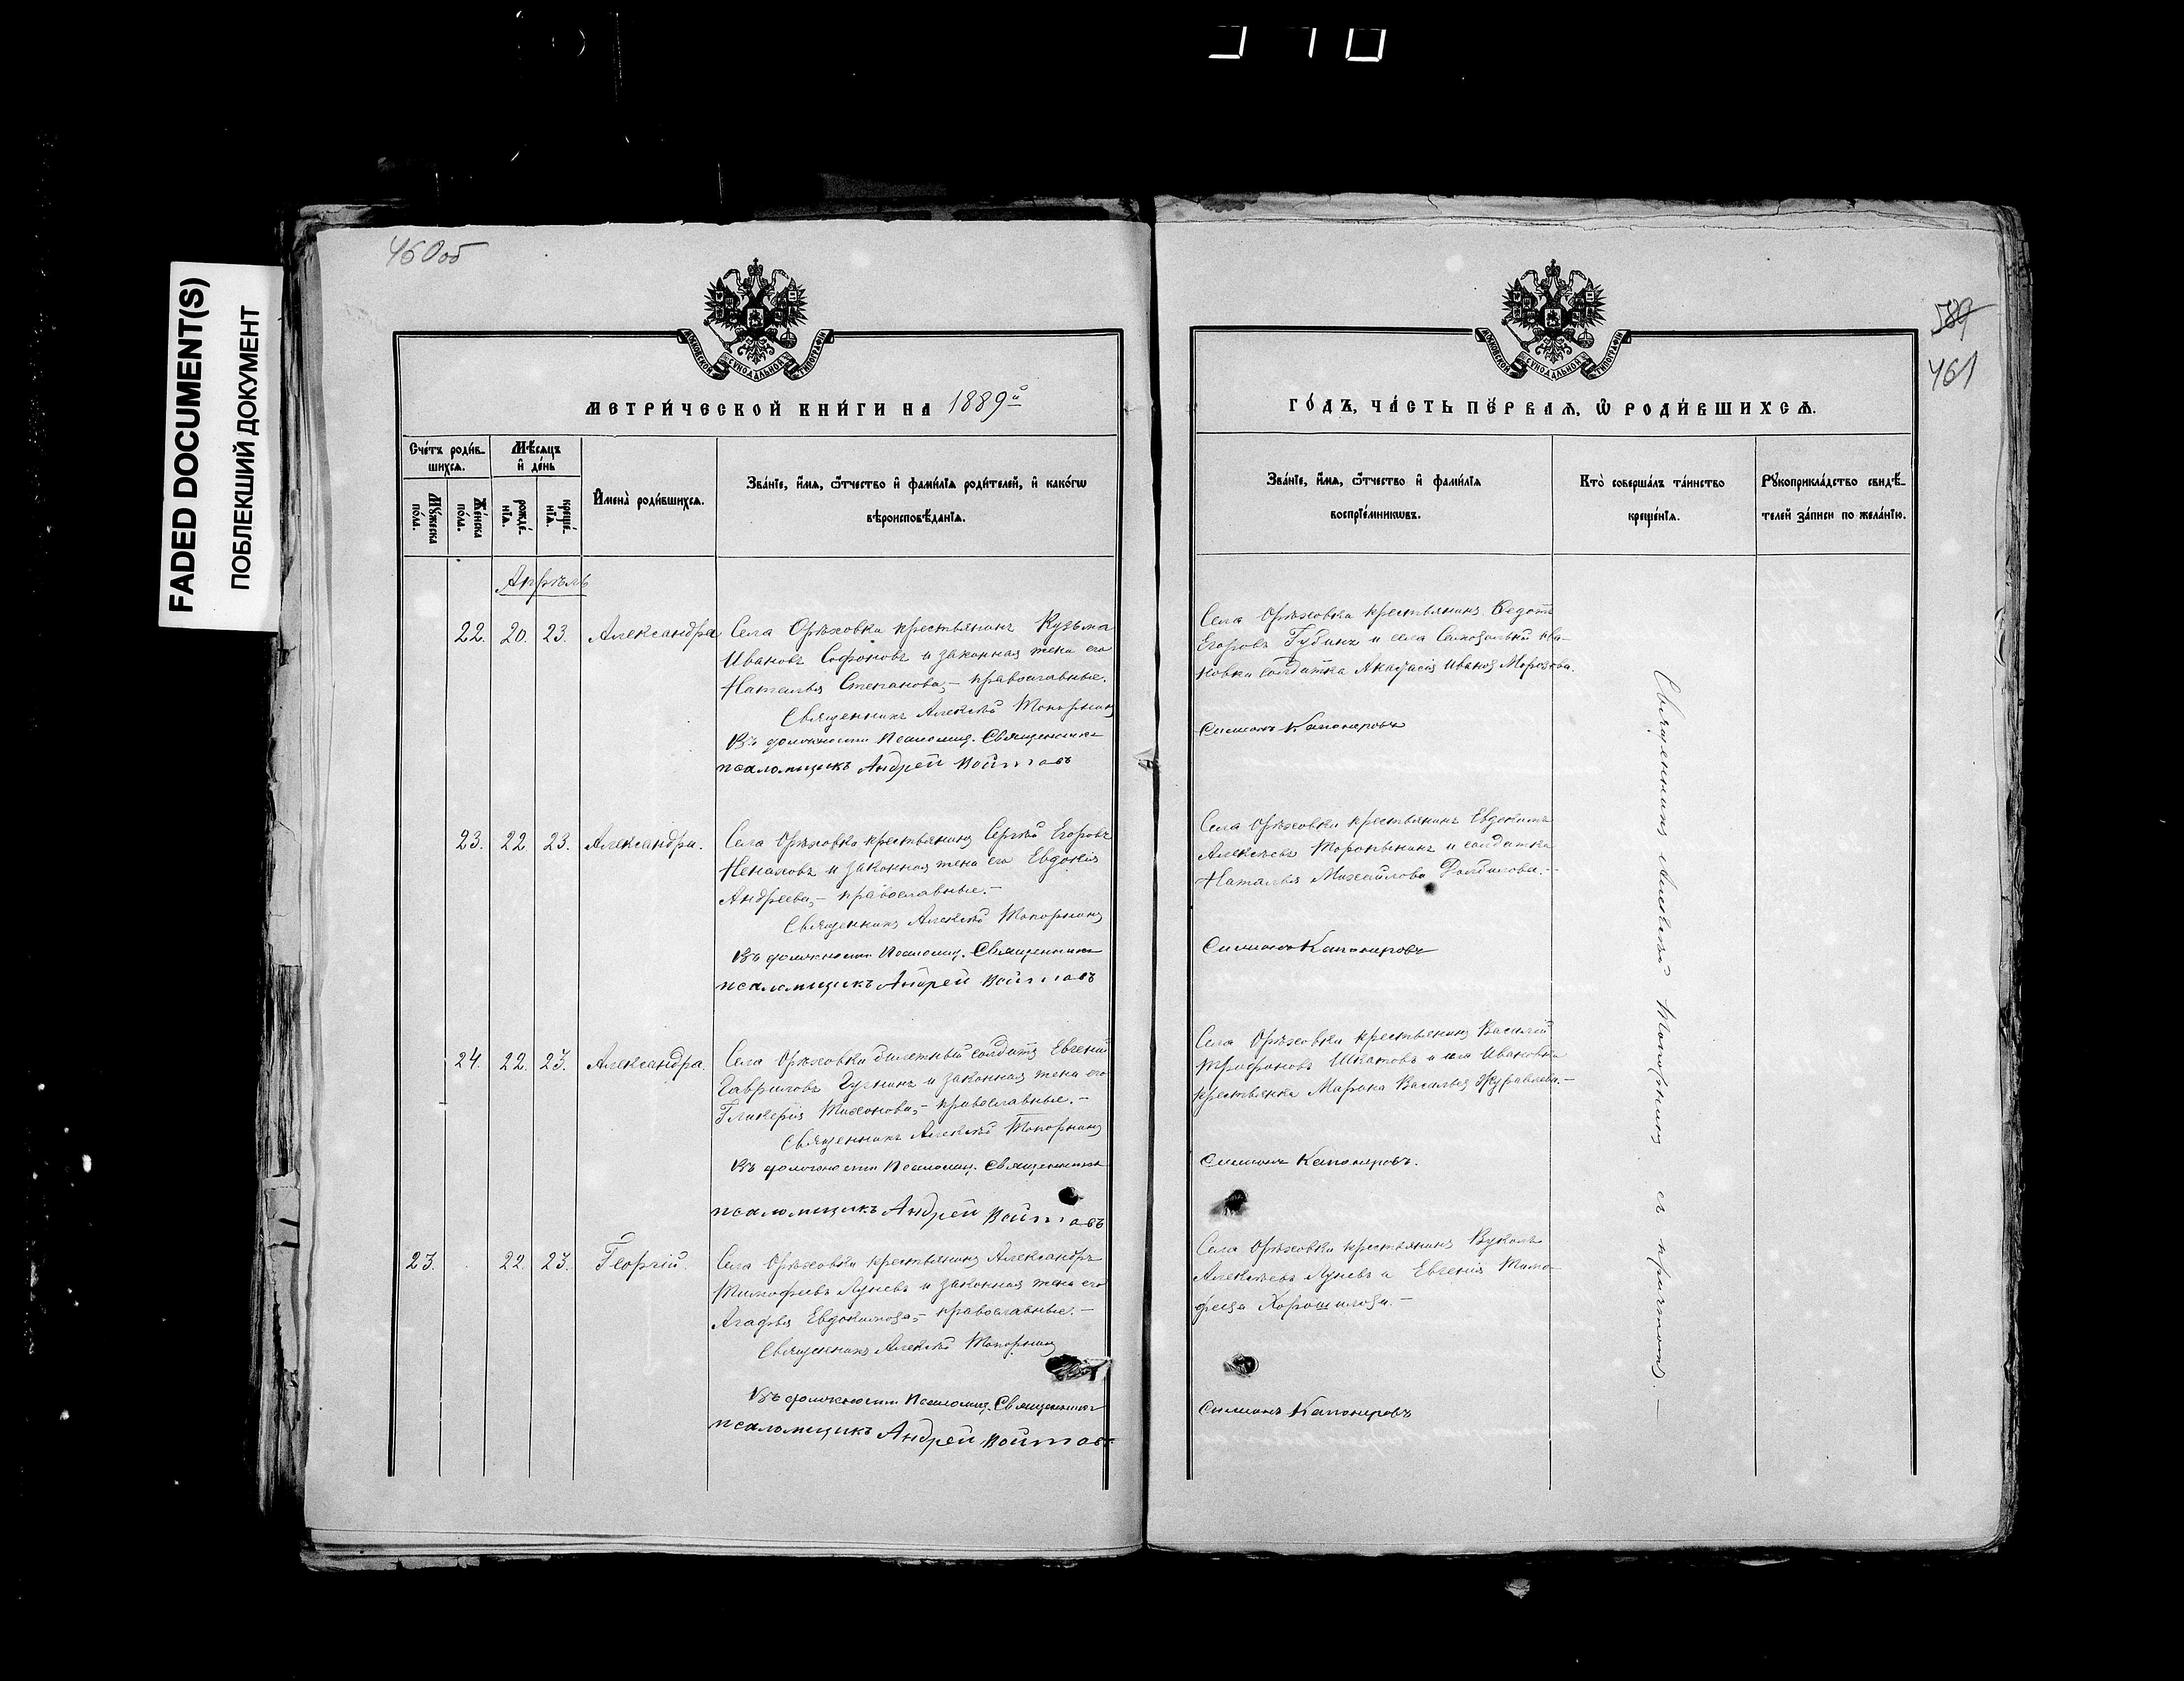 FADED DOCUMENT(S)
ПОБЛЕКШИЙ ДОКУМЕНТ
460об
МЕТРИ́ЧЕСКОЙ КНИ́ГИ НА 1889й
Сче́тъ роди́в-
шихся.
Мѣсяцъ
и҆ де́нь
Му́жеска по́ла.
Же́нска по́ла.
рожде́нїя.
креще́нїя.
И҆мена̀ роди́вшихся.
Зва́нїе, и҆́мя, ѻ҆́тчество и҆ фами́лїя роди́телей, и҆ како́гѡ
вѣроисповѣ́данїя.
Апрѣль
22. 20. 23. Александра
Села Орѣховки крестьянинъ Кузьма
Ивановъ Софоновъ и законная жена его
Наталья Степанова, - православные.
Священникъ Алексѣй Топорнинъ
Въ должности Псаломщ. Священникъ
псаломщикъ Андрей Войтовъ
23. 22 23. Александра.
Села Орѣховки крестьянинъ Сергѣй Егоровъ
Ненаховъ и законная жена его Евдокія
Андреева, - православные. -
Священникъ Алексѣй Топорнинъ
Въ должности Псаломщ. Священникъ
псаломщикъ Андрей Войтовъ
24. 22. 23. Александра.
Села Орѣховки билетный солдатъ Евгеній
Гавриловъ и законная жена его
Гликерія Тихонова, - православные. -
Священникъ Алексѣй Топорнинъ
Въ должности Псаломщ. Священникъ
псаломщикъ Андрей Войтовъ
23. 22. 23. Георгій.
Села Орѣховки крестьянинъ Александръ
Тимофеевъ Луневъ и законная жена его
Агафья Евдокимова, - православные. -
Священникъ Алексѣй Топорнинъ
Въ должности Псаломщ. Священникъ
псаломщикъ Андрей Войтовъ
589
461
ГО́ДЪ, ЧА́СТЬ ПЕ́РВАЯ, Ѽ РОДИ́ВШИХСЯ.
Зва́нїе, и҆́мя, ѻ҆́тчество и҆ фами́лїя
воспрїе́мникѡвъ.
Кто̀ соверша́лъ та́инство
креще́нїя.
Рꙋкоприкла́дство свидѣ́-
телей за́писи по жела́нїю.
Села Орѣховки крестьянинъ Федотъ
Егоровъ Губинъ и села Ива-
новки солдатка Анастасія Иванова Морозова.
Симеонъ Капонировъ
Села Орѣховки крестьянинъ Евдокимъ
Алексѣевъ Торопынинъ и солдатка
Наталья Михайлова -
Симеонъ Капонировъ
Села Орѣховки крестьянинъ Василій
Трофимовъ Шкатовъ и села Ивановки
крестьянка Марѳа Васильева Журавлева. -
Симеонъ Капонировъ.
Села Орѣховки крестьянинъ Вуколъ
Алексѣевъ Луневъ и Евгенія Тимо-
феева Хорошилова. -
Симеонъ Капонировъ
Священникъ Алексѣй Топорнинъ съ причтомъ. -